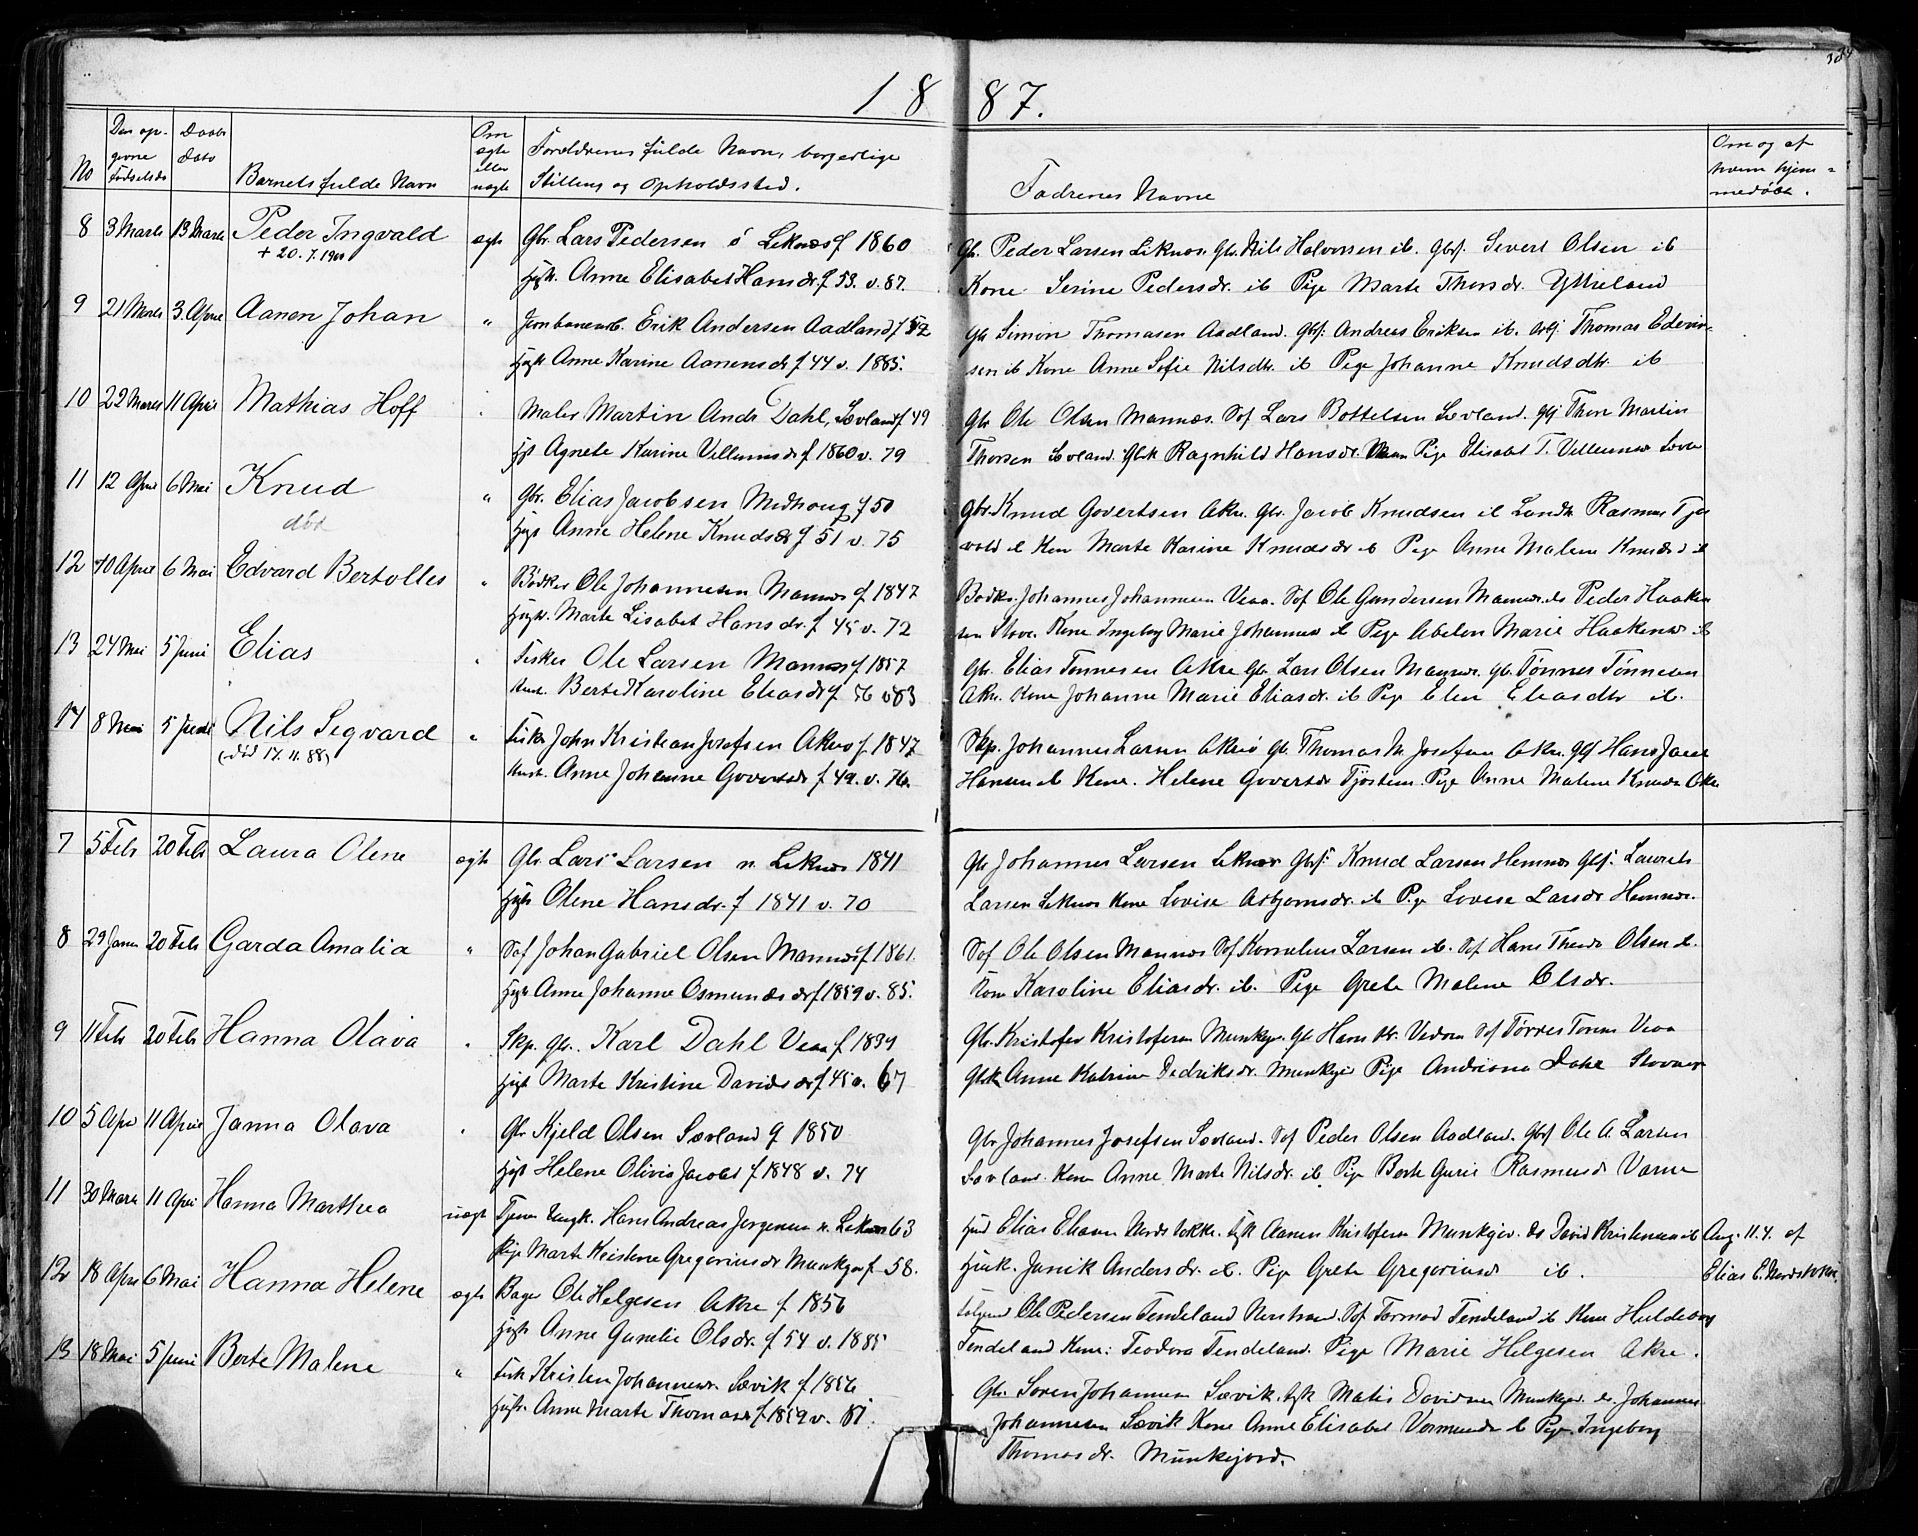 1887.
No Den opgivne Fødselsd. Daabs Dato Barnets fulde Navn Om ægte eller uægte Forældrenes fulde Navn, borgerlige Stilling og Opholdssted. Fadrenes Navne Om og af hvem hjemmedøbt.
8 3 Marts 13 Marts Peder Ingvald ægte Gbr. Lars Pedersen ó Leknes f 1860 Gb. Peder Larsen Leknes. Gbr. Nils Halvorsen ib. Gbsf. Sivert Olsen ib
+ 20.7.1900 Hust. Anne Elisabet Hansdr. f 53. v. 87. Kone Serine Pedersdr. ib Pige Marte Thorsdr. Yttreland
9 21 Marts 3 April Aanen Johan " Jernbanearb. Erik Andersen Aadland f 52 Gb Simon Thomasen Aadland. Gbsf. Andreas Eriksen ib. Arbj. Thomas Edvin-
Hust Anne Karine Aanensdr f 44 v. 1885. sen ib Kone Anne Sofie Nilsdtr. ib Pige Johanne Knudsdtr ib
10 22 Marts 11 April Mathias Hoff " Maler Martin Andr Dahl, Sævland f 49 Gbr Ole Olsen Mannes. Søf Lars Bottelsen Sævland. Gbsf Thor Martin
Hst Agnete Karine Villumsdr f 1860 v. 79 Thorsen Sævland. Gbsk Ragnhild Hansdr. Veaa Pige Elisabet T. Villumsdr
11 12 April 6 Mai Knud " Gbr. Elias Jacobsen Medhoug f 50 Gbr. Knud Govertsen Akre. Gbr. Jacob Knudsen ib Landh. Rasmus
død Hust Anne Helene Knudsdr f 51 v. 75 Kone Marte Karine Knudsdr ib Pige Anne Malene Knudsd ib
12 10 April 6 Mai Edvard Bertolles " Bødker Ole Johannesen Mannes f. 1847 Bødker Johannes Johannesen Veaa. Søf Ole Gundersen Mannes. do Peder Haaken
Hust. Marte Lisabet Hansdr. f 45 v. 72 sen Stova. Kone Ingeborg Marie Johannesd ib Pige Abelon Marie Haakensd ib
13 24 Mai 5 Juni Elias " Fisker Ole Larsen Mannes f 1857 Gbr. Elias Tønnesen Akre Gbr. Lars Olsen Mannes. Gbr. Tønnes Tønnesen
Hust. Berte Karoline Eliasdr f 56 v 83 Akre. Kone Johanne Marie Eliasdr. ib Pige Elen Eliasdtr ib.
14 8 Mai 5 Juni Nils Segvard " Fisker John Kristian Josefsen Akre f. 1847 Skp. Johannes Larsen Akre Gb. Thomas M. Josefsen Akre. Gbsf Hans Jacob
(død 17.11.88) Hust. Anne Johanne Govertsdr f 49. v. 76. Hansen ib Kone. Helene Govertsdr Tjøstem. Pige Anne Malene Knudsd Akre
7 5 Febr 20 Febr Laura Olene ægte Gbr Lars Larsen n. Leknes 1841 Gb Johannes Larsen Leknes Gbsf. Knud Larsen Hemnes Gbsf. Laurits
Hust Olene Hansdr. f 1841 v. 70 Larsen Leknes Kone Lovise Asbjørnsdr. ib Pige Lovise Larsdr Hemnes.
8 29 Janu 20 Febr Garda Amalia " Søf Johan Gabriel Olsen Mannes f 1861. Søf Ole Olsen Mannes Søf Kornelius Larsen ib. Søf. Hans Theodor Olsen ib.
Hust Anne Johanne Osmundsdr f 1859 v. 85. Kone Karoline Eliasdr. ib. Pige Grete Malene Olsdr.
9 11 Febr 20 Febr Hanna Olava " Skp. Gbr. Karl Dahl Veaa f 1839 Gbr. Kristofer Kristofersen Munkejor. Gbr Hans Kr. Vedøen Søf Tørres Veaa
Hust Marte Kristine Davidsdr f. 45 v. 67 Gbsk Anne Katrine Dedriksdr. Munkejor Pige Andriana Dahl
10 5 Apr 11 April Janna Olava " Gbr Kjeld Olsen Sævland f 1850 Gbr Johannes Josefsen Sævland. Søf Peder Olsen Aadland. Gbsf Ole A. Larsen
Hust Helene Olivia Jacobsd f 1848 v. 74 Sævland. Kone Anne Marte Nilsdr. ib. Pige Berte Gurie Rasmusd
11 30 Mars 11 April Hanna Marthea uægte Tjener Ungk. Hans Andreas Jørgensen n. Leknes 63 Hus Elias Eliassen Nordstokke. Ugk Aanen Kristofersen Munkejor. do David Kristensen ib Aug. 11.4. af
Pige Marte Kristine Gregoriusdr Munkejor f 58. Husk. Janik Andersdr. ib. Pige Grete Gregoriusd ib. Elias E. Nordstokke
12 18 April 6 Mai Hanna Helene ægte Bager Ole Helgesen Akre f 1856 Ole Pedersen Tendeland Nerstrand. Søf Tormod Tendeland ib Kone Huldeborg
Hust Anne Gunelie Olsdr. f 54 v. 1885 Tendeland Kone: Teodora Tendeland. Pige Marie Helgesen Akre.
13 18 Mai 5 Juni Berte Malene " Fisk Kristen Johannesen Sævik f 1856 Gbr. Soren Johannesen Sævik. Ugk Matis Davidsen Munkejord. do Johannes
Hust. Anne Marte Thomasdr f 1859 v. 81. Johannesen Sævik Kone Anne Elisabet Vormundsd ib Pige Ingeborg
Thomasdr. Munkejord.